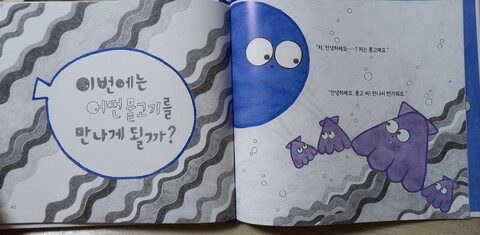 이번에는
어떤 물고기를
만나게 될까?
40
"저, 안녕하세요……? 저는 퐁고예요."
"안녕하세요, 퐁고 씨! 만나서 반가워요."